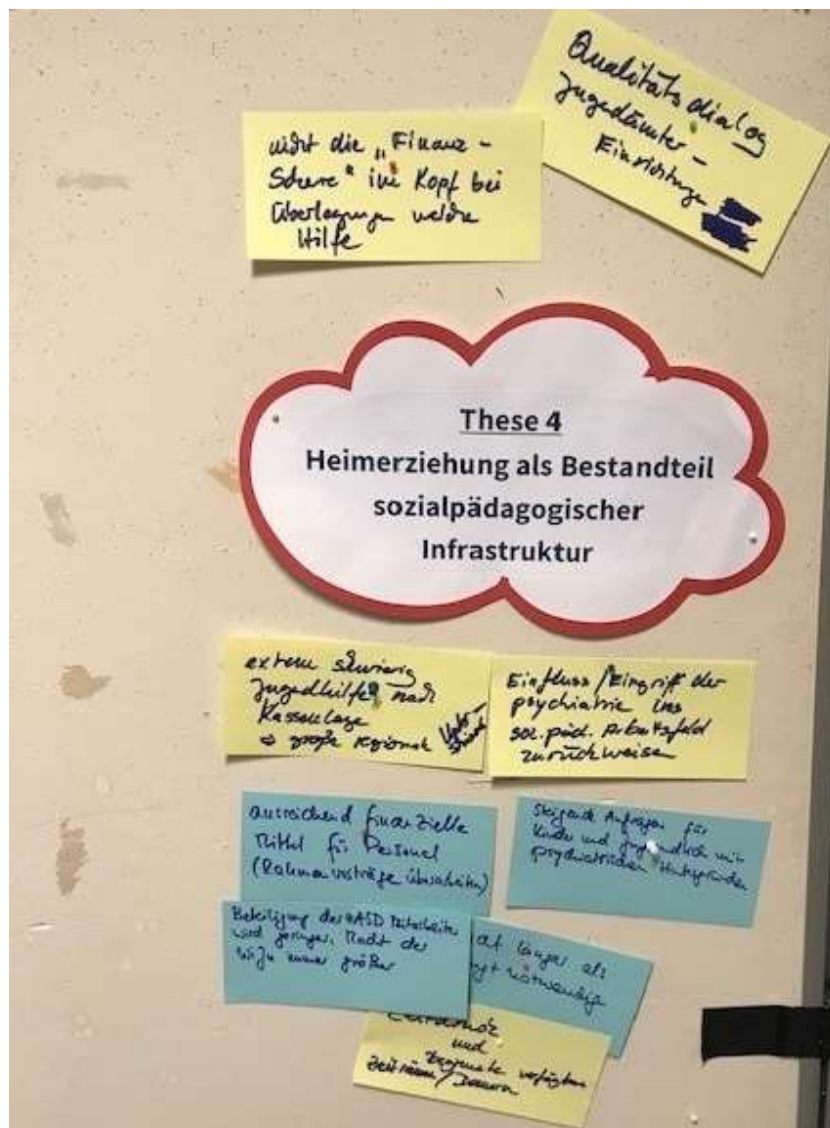 Qualitätsdialog
Jugendämter -
Einrichtungen
nicht die „Finanz -
Schere" im Kopf bei
Überlegungen welche
Hilfe
These 4
Heimerziehung als Bestandteil
sozialpädagogischer
Infrastruktur
extrem schwierig
Jugendhilfe nach
Kassenlage
⇒ große regionale
Einfluss / Eingriff der
psychiatrie ins
soz.päd. Arbeitsfeld
zurückweisen
ausreichend finanzielle
Mittel für Personal
(Rahmenverträge überarbeiten)
Steigende Anfragen für
Kinder und Jugendliche mit
psychiatrischen Hintergründen
Beteiligung der ASD Mitarbeiter
wird geringer, Macht der
immer größer
länger als
notwendig
und
verfügbare
Zeiträume /